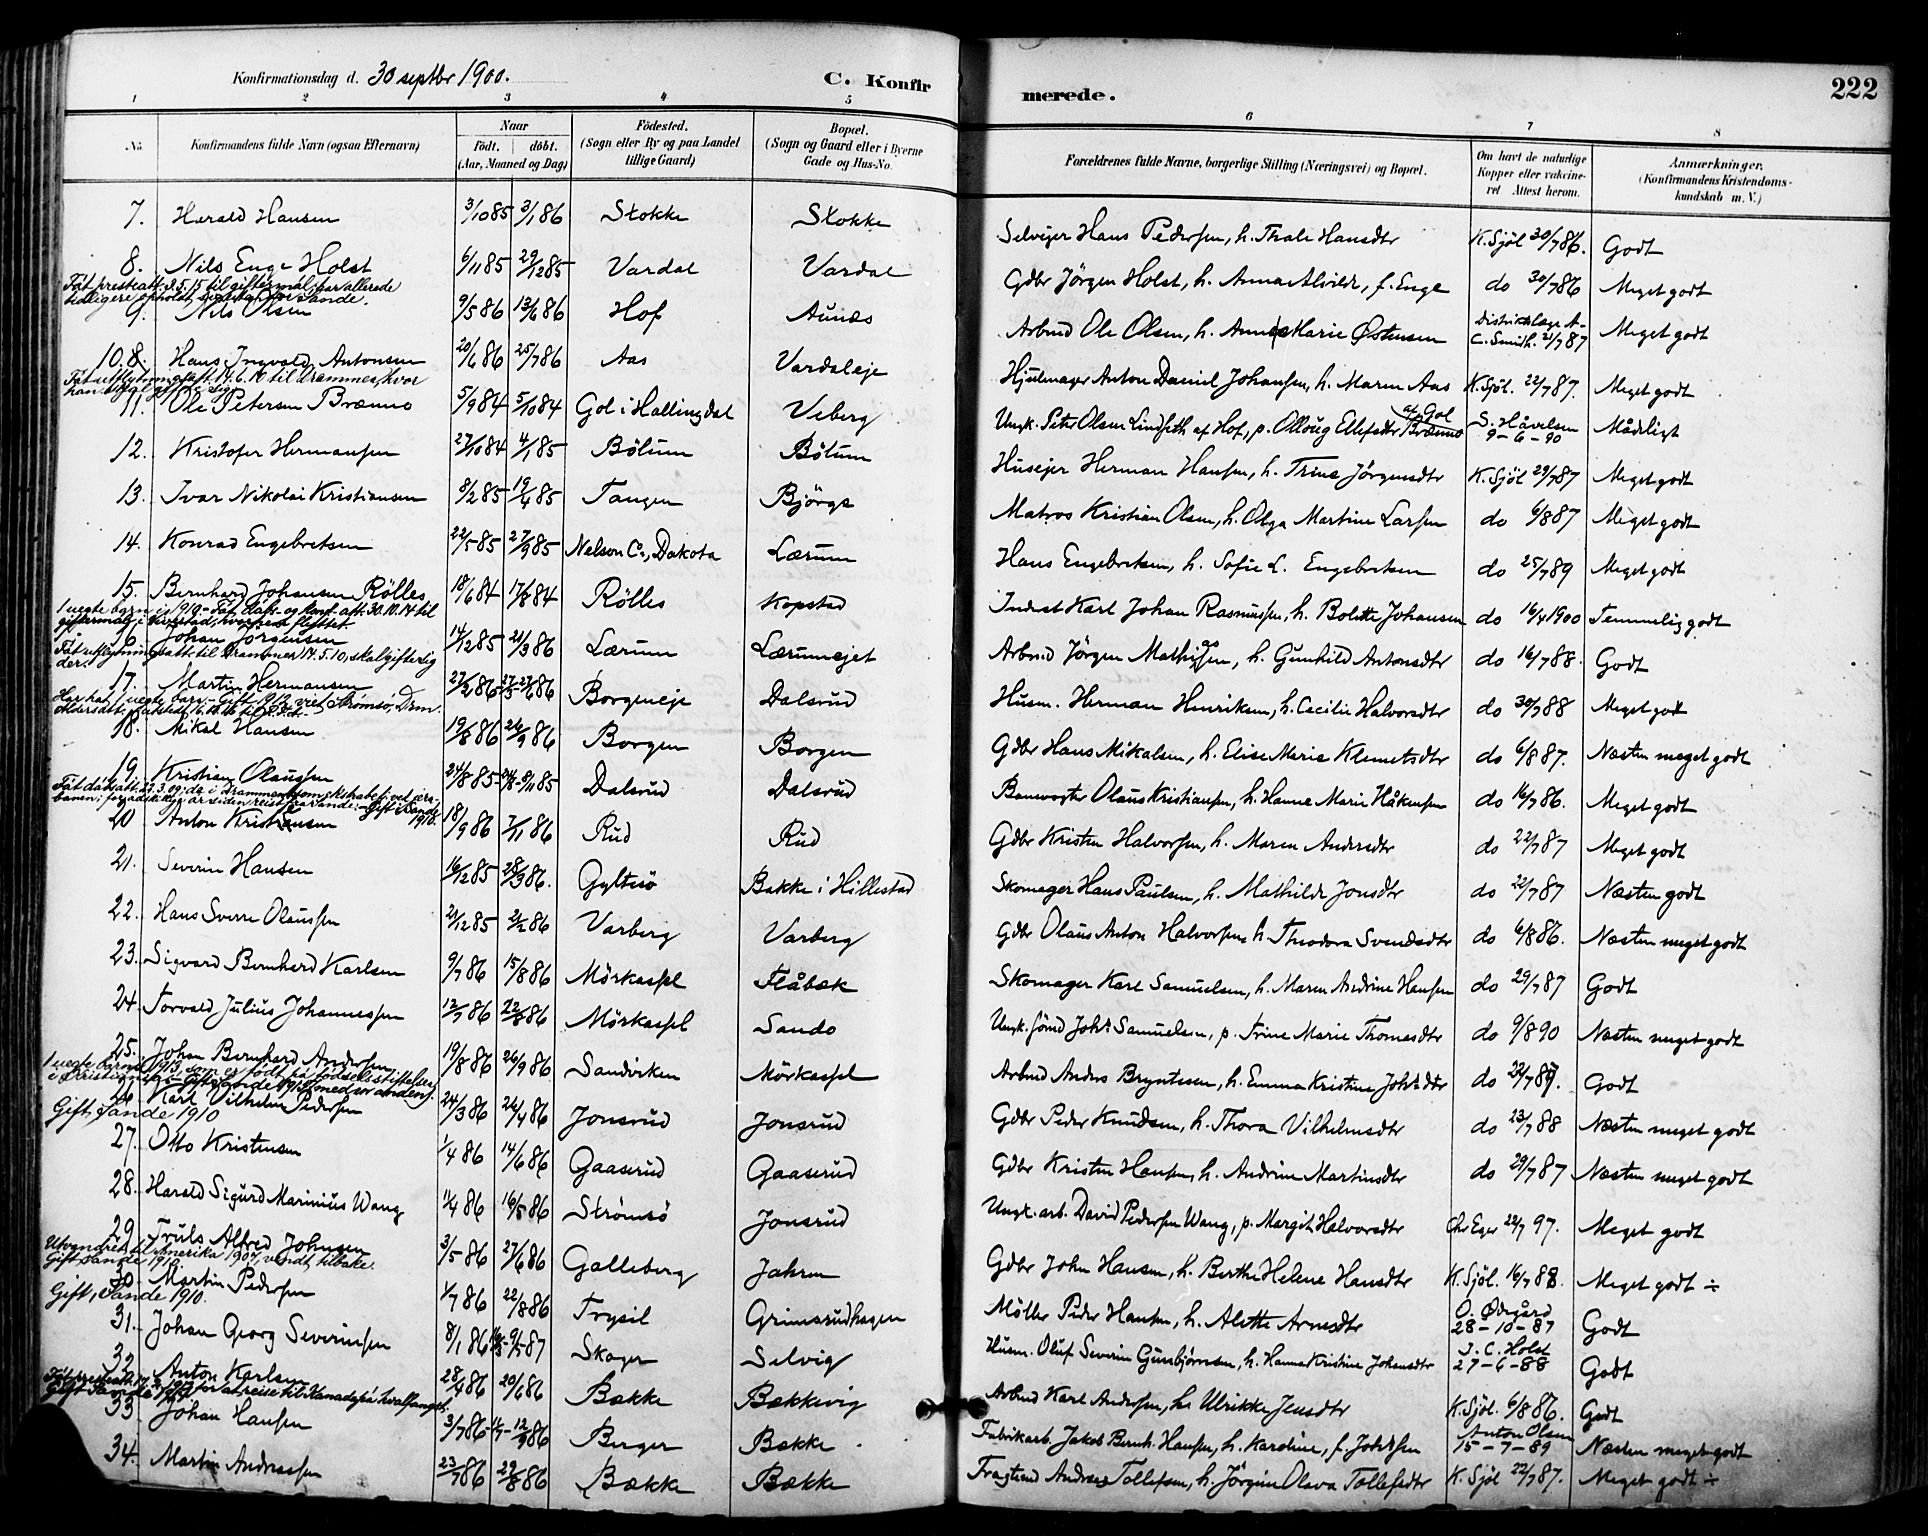 Konfirmationsdag d. 30 septbr 1900. C. Konfir merede. 222
1 2 3 4 5 6 7 8
No. Konfirmandens fulde Navn (ogsaa Efternavn) Naar Födt. döbt. (Aar, Maaned og Dag) Födested. (Sogn eller By og paa Landet tillige Gaard) Bopæl. (Sogn og Gaard eller i Byerne Gade og Hus-No. Forældrenes fulde Navne, borgerlige Stilling (Næringsvei) og Bopæl. Om havt de naturlige Kopper eller vakcineret Attest herom. Anmærkninger, (Konfirmandens Kristendomskundskab m. V.)
7. Harald Hansen 3/10 85 3/1 86 Stokke Stokke Selvejer Hans Pedersen, h. Thale Hansdtr K. Sjöl 30/7 86. Godt
8. Nils Enge Holst 6/11 85 29/12 85 Vardal Vardal Gdbr Jörgen Holst, h. Anna Alvilde, f. Enge do 30/7 86 Meget godt
Fåt presteatt. 3.5.15 til giftermål; har allerede
tidligere opholdt sig utenfor Sande.
9. Nils Olsen 9/5 86 13/6 86 Hof Aunæs Arbmd Ole Olsen, h. Anne Marie Østensen Distriktslæge A. C. Smith. 21/7 87 Meget godt
10. Hans Ingvald Antonsen 20/6 86 25/7 86 Aas Vardaleje Hjulmager Anton Daniel Johansen, h. Maren Aas K. Sjöl. 22/7 87. Meget godt
Fåt utflytningsatt. 14.6.10 til Drammen, hvor
11. Ole Petersen Brænno 5/9 84 5/10 84 Gol i Hallingdal Veberg Ungk. Peter Olsen Lindseth af Hof, p. Olloug Ellefsdtr Brænno af Gol S. Håvelsen 9-6-90 Mådeligt
12. Kristofer Hermansen 27/10 84 4/1 85 Bölum Bölum Husejer Herman Hansen, h. Trine Jörgensdtr K. Sjöl 29/7 87 Meget godt
13. Ivar Nikolai Kristiansen 8/2 85 19/4 85 Tangen Bjørge Matros Kristian Olsen, h. Olga Martine Larsen do 6/8 87 Meget godt
14. Konrad Engebretsen 22/5 85 27/9 85 Nelson Co, Dakota Lærum Hans Engebretsen, h. Sofie L. Engebretsen do 25/7 89 Meget godt
15. Bernhard Johansen Rölles 18/6 84 17/8 84 Rölles Kopstad Inderst Karl Johan Rasmussen, h. Bolette Johansen do 16/1 1900 Temmelig godt
1 uegte barn i 1910. Fåt dåbs- og konf.-att. 30.10.14 til
16. Johan Jörgensen 14/12 85 21/3 86 Lærum Lærumejet Arbmd Jörgen Mathisen, h. Gunhild Antonsdtr do 16/7 88. Godt
Fåt utflytningsatt. til Drammen 14.5.10, skal gifte sig
der.
17. Martin Hermansen 27/2 86 27/6 86 Borgeneje Dalsrud Husm. Herman Henriksen, h. Cecilie Halvorsdtr do 30/7 88 Meget godt
18. Mikal Hansen 19/8 86 26/9 86 Borgen Borgen Gdbr Hans Mikalsen, h. Elise Marie Klemetsdtr do 6/8 87. Næsten meget godt
19 Kristian Olaussen 24/8 85 8/11 85 Dalsrud Dalsrud Banevogter Olaus Kristiansen, h. Hanne Marie Håkensen do 16/7 86. Meget godt
20 Anton Kristensen 18/9 86 7/11 86 Rud Rud Gdbr Kristen Halvorsen, h. Maren Andersdtr do 22/7 87 Meget godt
21. Severin Hansen 16/12 85 28/3 86. Gyltesö Bakke i Hillestad Skomager Hans Paulsen, h. Mathilde Jonsdtr do 22/7 87 Næsten godt
22. Hans Sverre Olaussen 21/12 85 21/2 86 Varberg Varberg Gdbr Olaus Anton Halvorsen, h. Theodora Svendsdtr do 6/8 86. Næsten meget godt
23. Sigvard Bernhard Karlsen 9/7 86 15/8 86 Mörkassel Flåbæk Skomager Karl Samuelsen, h. Maren Andrine Hansen do 29/7 87 Godt
24. Torvald Julius Johannessen 12/7 86 22/8 86 Mörkassel Sando Ungk. Sömd Johs Samuelsen, p. Trine Marie Thomasdtr do 9/8 90 Næsten meget godt
25. Johan Bernhard Andersen 19/8 86 26/9 86 Sandviken Mörkassel Arbmd Anders Bryntesen, h. Emma Kristine Johsdtr do 22/7 87. Godt
26 Karl Vilhelm Pedersen 24/3 86 26/4 86 Jonsrud Jonsrud Gdbr Peder Knudsen, h. Thora Vilhelmsdtr do 23/7 88 Næsten meget godt
Gift, Sande 1910
27. Otto Kristensen 1/4 86 14/6 86 Gaaserud Gaaserud Gdbr Kristen Hansen, h. Andrine Martinsdtr do 29/7 87 Næsten meget godt
28. Harald Sigurd Marinius Wang 1/4 86 16/5 86 Strömsö Jonsrud Ungk. arb. David Pedersen Wang, p. Margit Halvorsdtr Chr Eger 22/7 97. Meget godt
29. Truls Alfred Johnsen 3/5 86 27/6 86 Galleberg Jahren Gdbr John Hansen, h. Berthe Helene Hansdtr K. Sjöl. 16/7 88. Meget godt ÷
Utvandret til Amerika 1907, vendt tilbake.
Gift Sande 1910.
30. Martin Pedersen 1/7 86 22/8 86 Trysil Grimsrudhagen Möller Peder Hansen, h. Alette Arnesdtr O. Ødegård 28-10-87 Godt
Gift, Sande 1910.
31. Johan Georg Severinsen 8/1 86 9/5 87 Skoger Selvig Husm. Oluf Severin Gunbjørnsen, h. Hanna Kristine Johansdtr J. C. Holst 27-6-88 Godt
32. Anton Karlsen 28/4 86 20/6 86 Bække Bækkevig Arbmd Karl Andersen, h. Ulrikke Jensdtr K. Sjöl. 6/8 86. Godt
33 Johan Hansen 3/7 86 12/9 86 Berger Bække Fabrikarb. Jakob Bernh. Hansen, h. Karoline, f. Johssen Anton Olsen 15-7-89 Næsten meget godt
34. Martin Andreassen 23/7 86 29/8 86 Bække Bække Fragtemd Andreas Tollefsen, h. Jörgine Olava Tollefsdtr K. Sjöl 22/7 87. Meget godt ÷